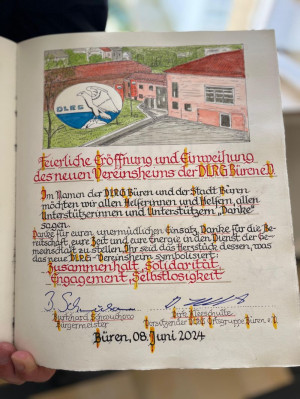 DLRG
Feierliche Eröffnung und Einweihung
des neuen Vereinsheims der DLRG Büren
Im Namen der DLRG Büren und der Stadt Büren
möchten wir allen Helferinnen und Helfern, allen
Unterstützerinnen und Unterstützern „Danke"
sagen.
Danke für euren unermüdlichen Einsatz, Danke für die Be-
reitschaft eure Zeit und eure Energie in den Dienst der Ge-
meinschaft zu stellen. Ihr seid das Herzstück dessen, was
das neue DLRG-Vereinsheim symbolisiert:
Zusammenhalt, Solidarität
Engagement, Selbstlosigkeit
Burkhard Schwuchow
Bürgermeister
Dirk Kleeschulte
Vorsitzender DLRG Ortsgruppe Büren e.V.
Büren, 08. Juni 2024